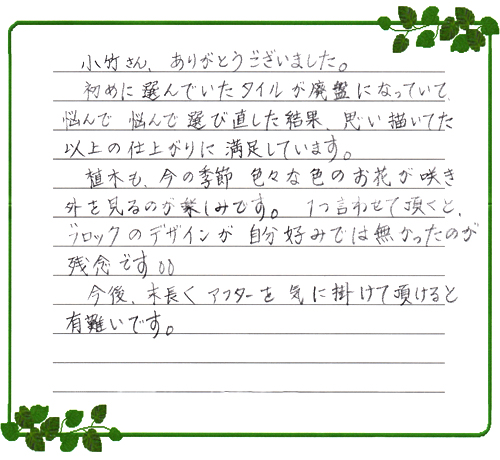 小竹さん、ありがとうございました。
初めに選んでいたタイルが廃盤になっていて、
悩んで 悩んで選び直した結果、思い描いてた
以上の仕上がりに満足しています。
植木も、今の季節 色々な色のお花が咲き
外を見るのが楽しみです。 1つ言わせて頂くと、
ブロックのデザインが自分好みでは無かったのが
残念です
今後、末長くアフターを気に掛けて頂けると
有難いです。